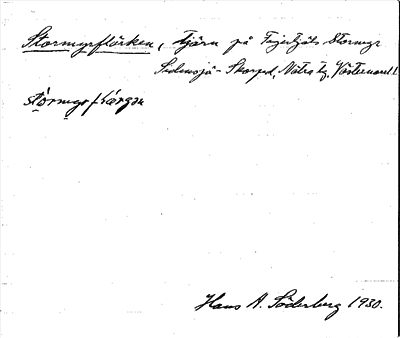 Stormyrflärken, tjärn på Stormyr
Sidensjö - Skorped, Nätra tg, Västernorrl. l.
stórmyrflárgen
Hans A. Söderberg 1930.